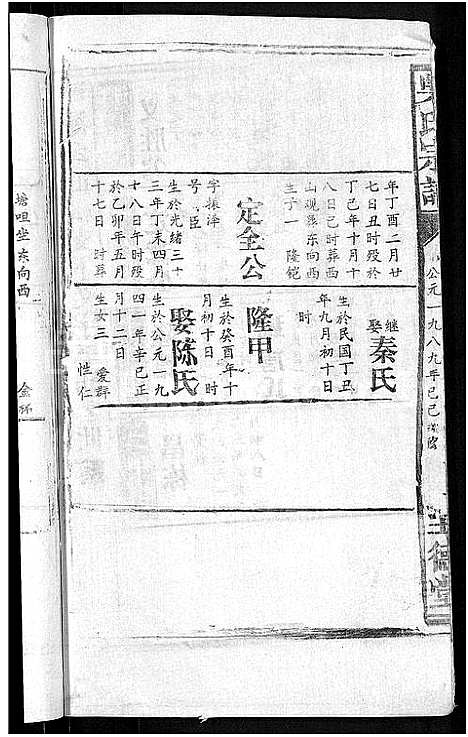 吴氏宗譜
公元一九八九年己巳
德堂
年丁酉二月廿
七日丑时殁於
丁巳年十月十
八日己时葬西
山观县东向西
生子一 隆铠
定全公
字振泽
号 臣
生於光绪三十
三年丁未四月
十八日午时殁
於乙卯年五月
十七日 时葬
继娶秦氏
生於民国丁丑
年九月初十日
时
隆甲
生於癸酉年十
月初十日 时
娶陈氏
生於公元一九
四一年辛巳正
月十二日 时
生女三 爱群
性仁
塘咀坐东向西
金怀